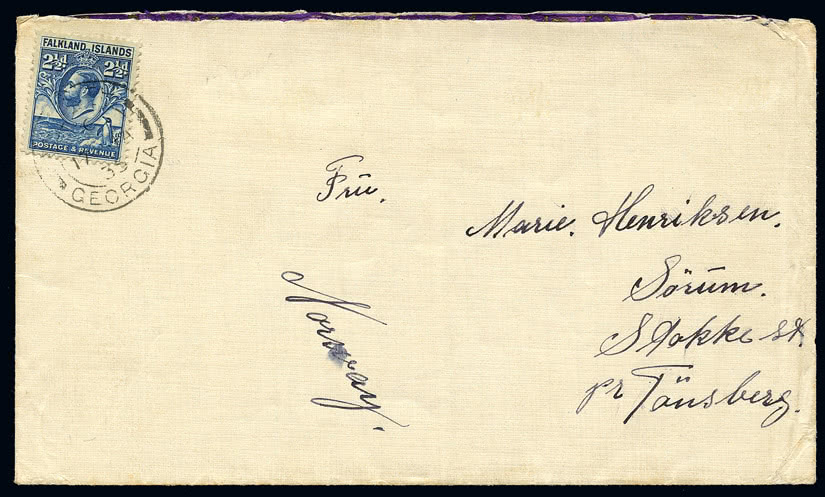 FALKLAND ISLANDS
2½d 2½d
POSTAGE & REVENUE
GEORGIA
Frū.
Marie. Henriksen.
Sörūm.
Stokke st.
pr Tönsberg.
Norway.